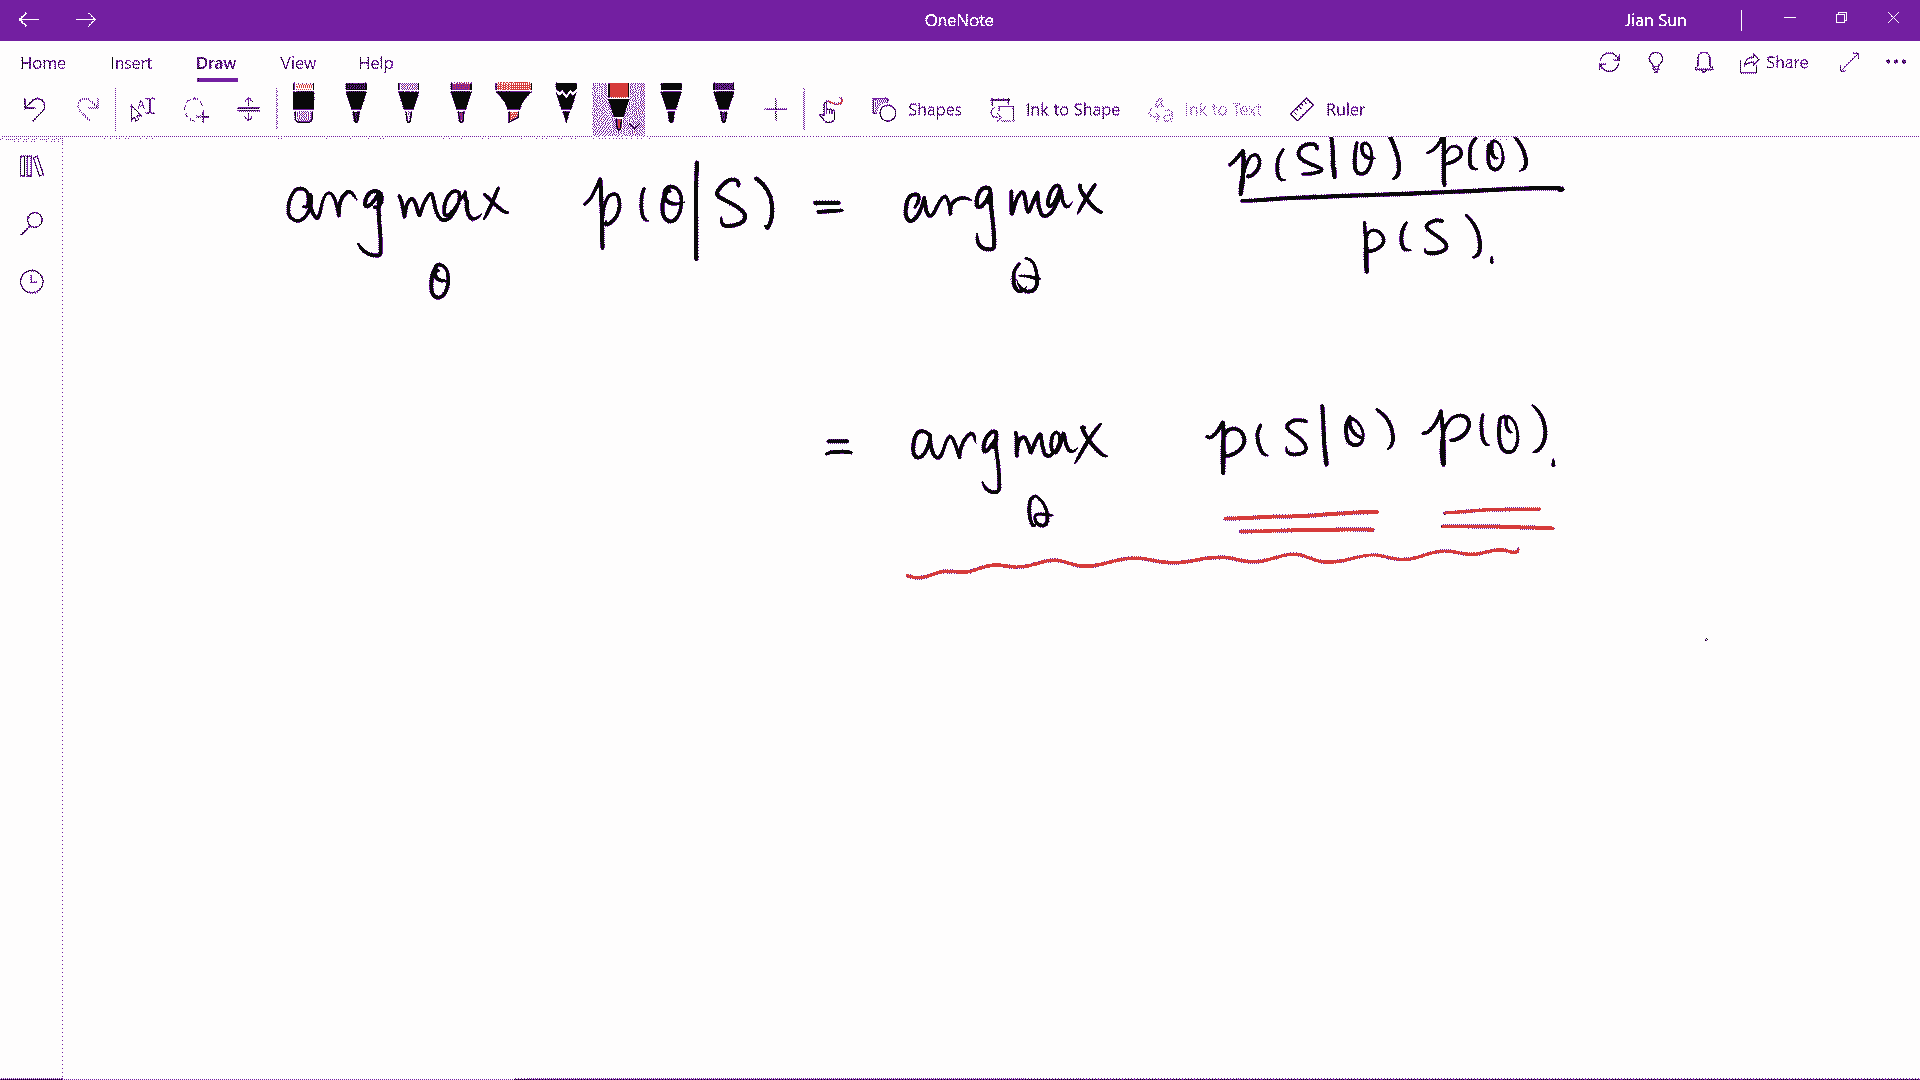 OneNote
Jian Sun
Home Insert Draw View Help
Share
Shapes Ink to Shape Ink to Text Ruler
argmax p(θ|S) = argmax p(S|θ) p(θ)
θ θ p(S).
= argmax p(S|θ) p(θ).
θ